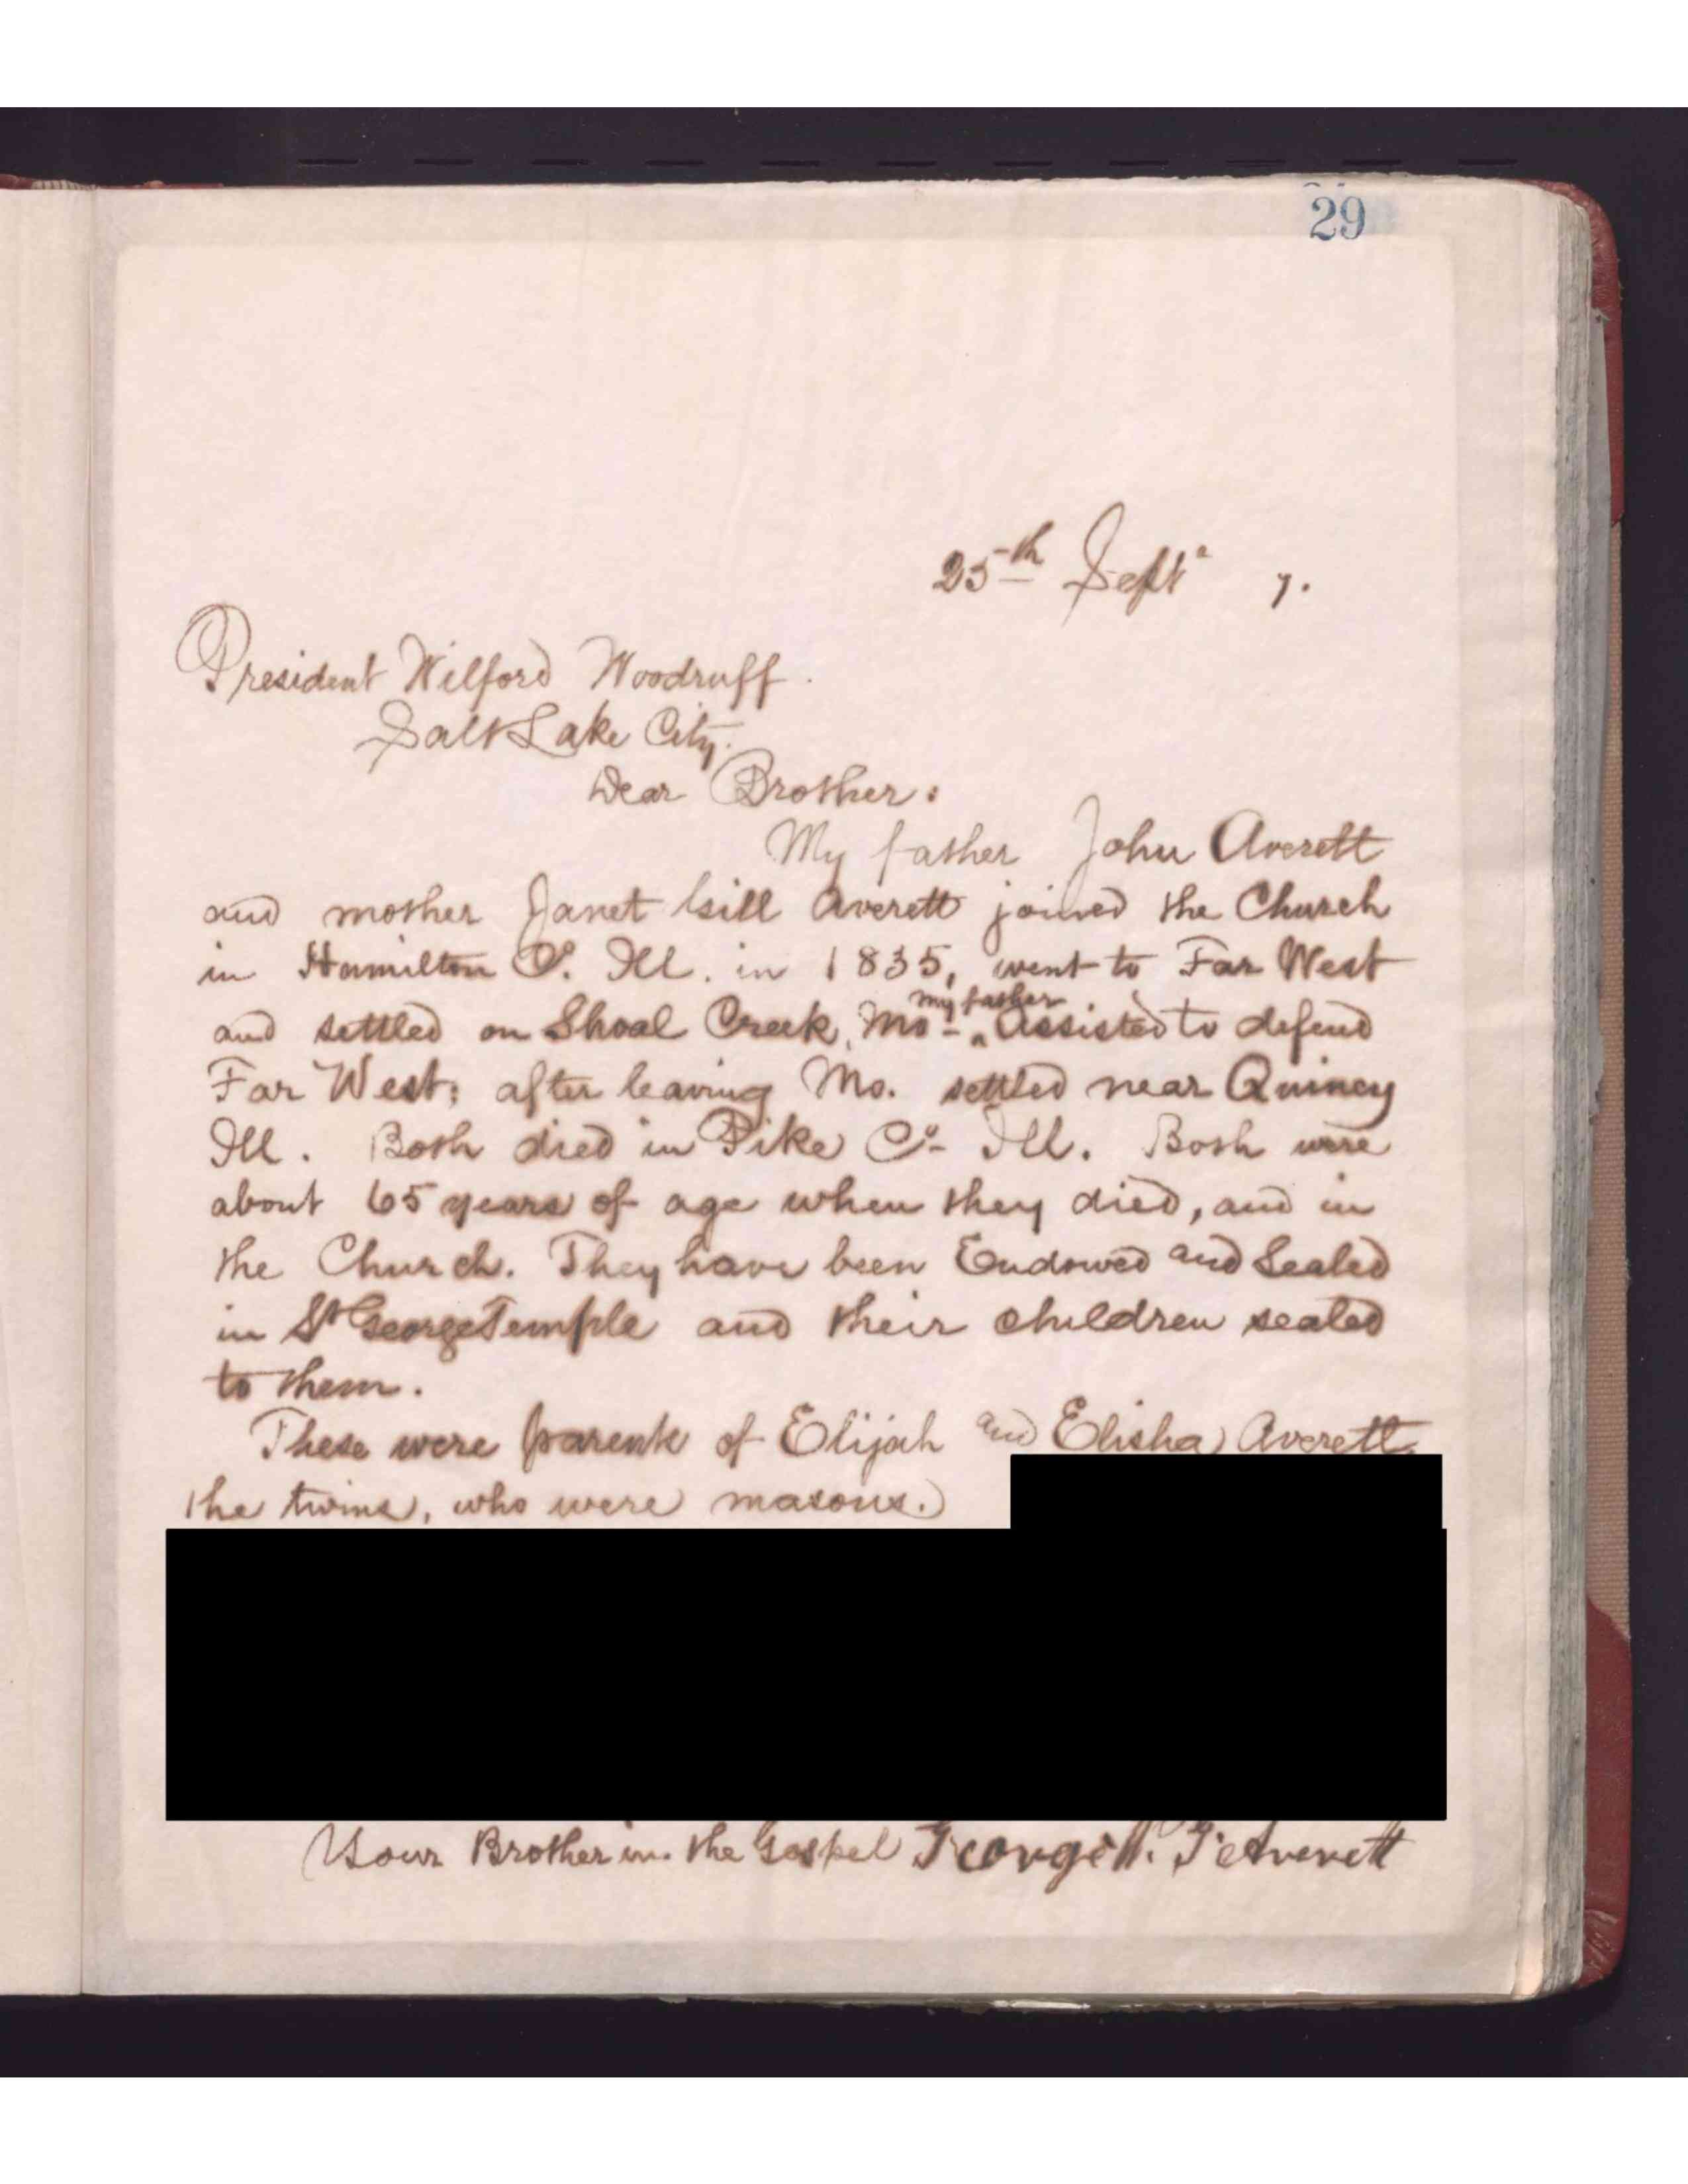 29
25th Sept. 7.
President Wilford Woodruff.
Salt Lake City.
Dear Brother:
My father John Averett
and mother Janet Gill Averett joined the Church
in Hamilton Co. Ill. in 1835, went to Far West
my father
and settled on Shoal Creek, Mo - ^ Assisted to defend
Far West; after leaving Mo. settled near Quincy
Ill. Both died in Pike Co- Ill. Both were
about 65 years of age when they died, and in
the Church. They have been Endowed and Sealed
in St George Temple and their children sealed
to them.
These were parents of Elijah and Elisha Averett
the twins, who were masons.)
Your Brother in the Gospel George Averett